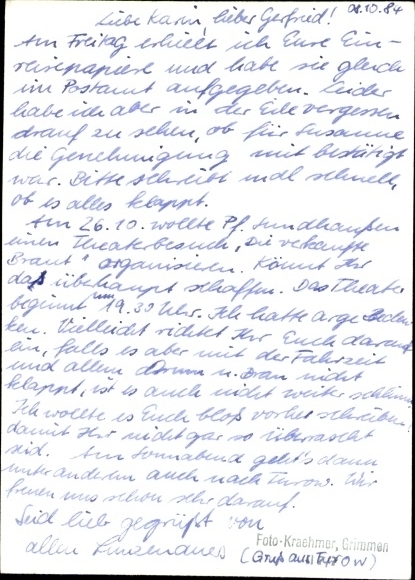 08.10.84
Liebe Karin, lieber Gerfried!
Am Freitag erhielt ich Eure Ein-
reisepapiere und habe sie gleich
im Postamt aufgegeben. Leider
habe ich aber in der Eile vergessen
drauf zu sehen, ob für Susanne
die Genehmigung mit bestätigt
war. Bitte schreibt mal schnell,
ob es alles klappt.
Am 26.10. wollte Pf. Sundhaußen
einen Theaterbesuch „Die verkaufte
Braut" organisieren. Könnt Ihr
das überhaupt schaffen. Das Theater
beginnt um 19.30 Uhr. Ich hatte arge Beden-
ken. Vielleicht richtet Ihr Euch darauf
ein, falls es aber mit der Fahrzeit
und allem drum u. dran nicht
klappt, ist es auch nicht weiter schlimm.
Ich wollte es Euch bloß vorher schreiben,
damit Ihr nicht gar so überrascht
seid. Am Sonnabend geht's dann
unter anderem auch nach Turow. Wir
freuen uns schon sehr darauf.
Seid lieb gegrüßt von
allen
Foto-Kraehmer, Grimmen
(Gruß aus Turow)